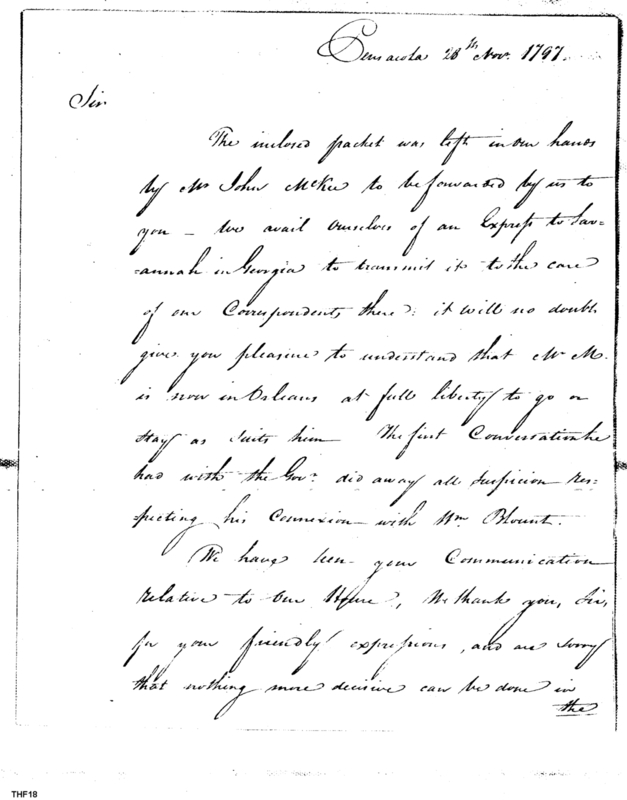 Pensacola 28th Nov. 1797.
Sir
The inclosed packet was left in our hands
by Mr John McKee to be forwarded by us to
you – We avail ourselves of an Express to Sav=
=annah in Georgia to transmit it to the care
of our Correspondents there: it will no doubt
give you pleasure to understand that Mr M.
is now in Orleans at full liberty to go or
stay as suits him The first Conversation he
had with the Govr. did away all suspicion res=
=pecting his Connexion with Wm Blount.
We have seen your Communication
relative to our House, We thank you, Sir,
for your friendly expressions, and are sorry
that nothing more decisive can be done in
the
THF18